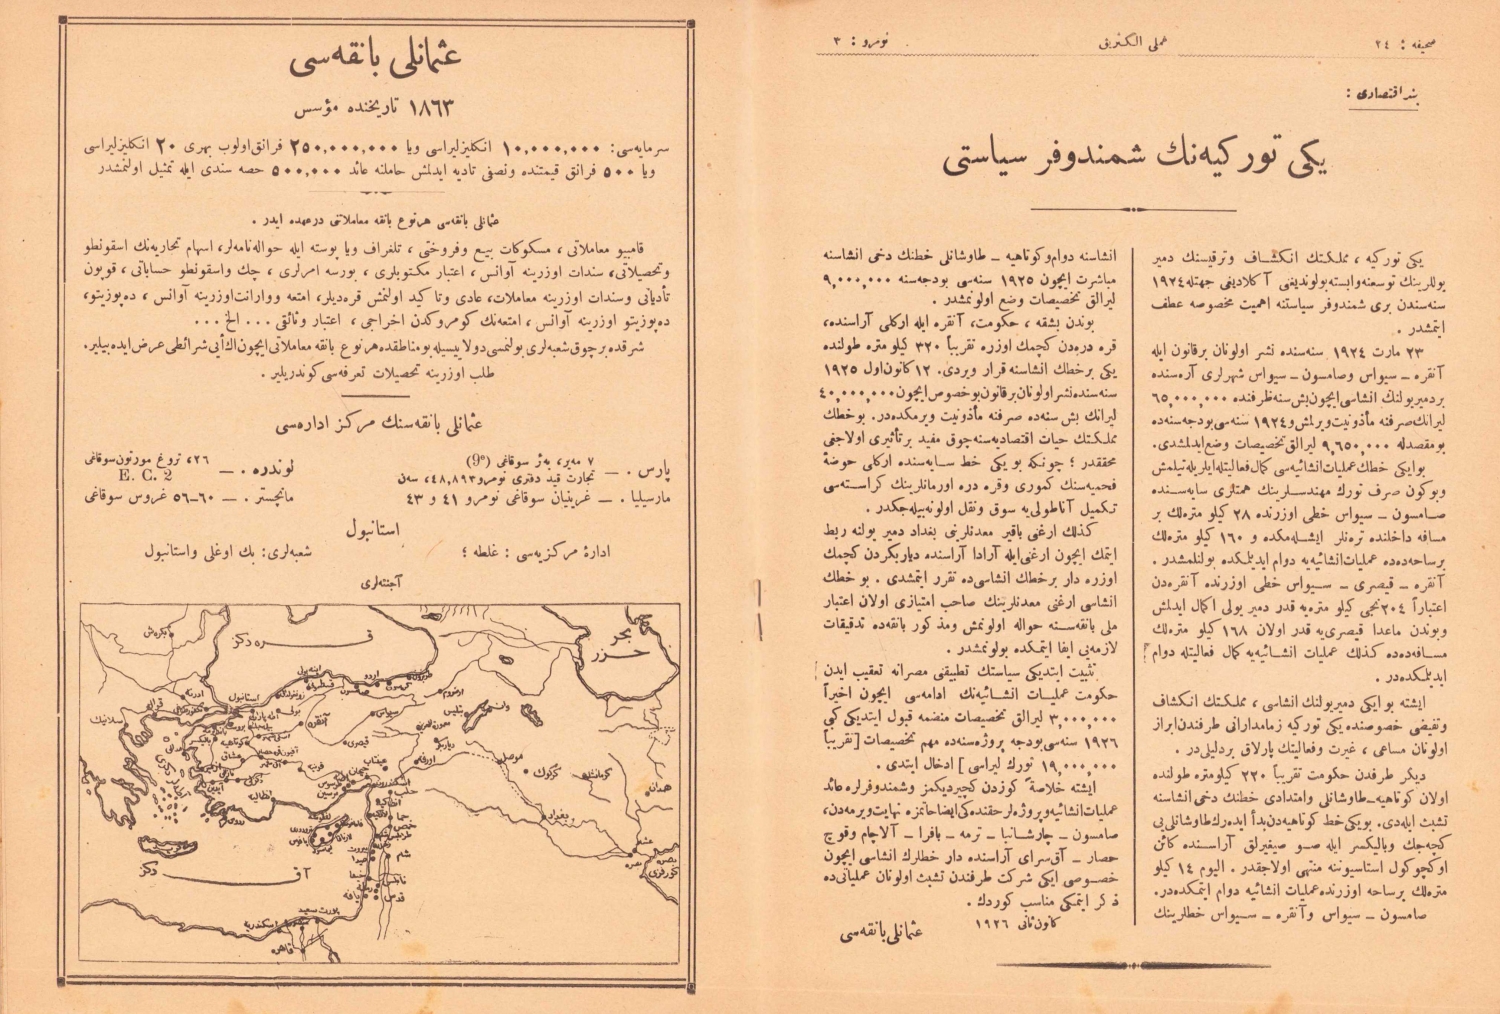 صحیفه : ٢٤
عملی الكتریق
نومرو : ٣
بند اقتصادی :
یكی توركیه‌نك شمندوفر سیاستی
یكی توركیه ، مملكتك انكشاف وترقیسنك دمیر
یوللرینك توسعنه وابسته بولوندیغی آكلادیغی جهتله ١٩٢٤
سنه‌سندن بری شمندوفر سیاستنه اهمیت مخصوصه عطف
ایتمشدر .
٢٣ مارت ١٩٢٤ سنه‌سنده نشر اولونان برقانون ایله
آنقره ـ سیواس وصامسون ـ سیواس شهرلری آره‌سنده
بردمیریولنك انشاسی ایچون بش سنه ظرفنده ٦٥,٠٠٠,٠٠٠
لیرانك صرفنه مأذونیت ویرلمش و ١٩٢٤ سنه‌سی بودجه‌سنده
بومقصدله ٩,٦٥٠,٠٠٠ لیرالق تخصیصات وضع ایدلمشدی.
بو ایكی خطك عملیات انشائیه‌سی كمال فعالیتله ایلریله‌تیلمش
وبوكون صرف تورك مهندسلرینك همتلری سایه‌سنده
صامسون ـ سیواس خطی اوزرنده ٢٨ كیلو متره‌لك بر
مسافه داخلنده تره‌نلر ایشله‌مكده و ١٦٠ كیلو متره‌لك
برساحه‌ده‌ده عملیات انشائیه‌یه دوام ایدیلمكده بولنلمشدر .
آنقره ـ قیصری ـ سیواس خطی اوزرنده آنقره‌دن
اعتباراً ٢٠٤ نجی كیلو متره‌یه قدر دمیر یولی اكمال ایدلمش
وبوندن ماعدا قیصری‌یه قدر اولان ١٦٨ كیلو متره‌لك
مسافه‌ده‌ده كذلك عملیات انشائیه‌یه كمال فعالیتله دوام
ایدیلمكده‌در .
ایشته بو ایكی دمیریولنك انشاسی ، مملكتك انكشاف
وتفیضی خصوصنده یكی توركیه زمامدارانی طرفندن ابراز
اولونان مساعی ، غیرت وفعالیتك پارلاق بردلیلی‌در .
دیكر طرفدن حكومت تقریباً ٢٢٠ كیلومتره طولنده
اولان كوتاهیه ـ طاوشانلی وامتدادی خطنك دخی انشاسنه
تشبث ایله‌دی. بو یكی خط كوتاهیه‌دن بدأ ایده‌رك طاوشانلی‌یی
كچه‌جك وبالیكسر ایله صو صیغیرلق آراسنده كائن
اوكچوكول استاسیوننه منتهی اولاجقدر . الیوم ١٤ كیلو
متره‌لك برساحه اوزرنده عملیات انشائیه دوام ایتمكده‌در.
صامسون ـ سیواس وآنقره ـ سیواس خطلرینك
انشاسنه دوام وكوتاهیه ـ طاوشانلی خطنك دخی انشاسنه
مباشرت ایچون ١٩٢٥ سنه‌سی بودجه‌سنه ٩,٠٠٠,٠٠٠
لیرالق تخصیصات وضع اولونمشدر .
بوندن بشقه ، حكومت، آنقره ایله اركلی آراسنده،
قره دره‌دن كچمك اوزره تقریباً ٣٢٠ كیلو متره طولنده
یكی برخطك انشاسنه قرار ویردی. ١٢ كانون اول ١٩٢٥
سنه‌سنده نشر اولونان برقانون بوخصوص ایچون ٤٠,٠٠٠,٠٠٠
لیرانك بش سنه‌ده صرفنه مأذونیت ویرمكده‌در. بو خطك
مملكتك حیات اقتصادیه‌سنه چوق مفید بر تأثیری اولاجغی
محققدر ؛ چونكه بو یكی خط سایه‌سنده اركلی حوضهٔ
فحمیه‌سنك كموری وقره دره اورمانلرینك كراسته‌سی
تكمیل آناطولی‌یه سوق ونقل اولونه‌بیله‌جكدر .
كذلك ارغنی باقیر معدنلرینی بغداد دمیر یولنه ربط
ایتمك ایچون ارغنی ایله آرادا آراسنده دیاربكردن كچمك
اوزره دار برخطك انشاسی‌ده تقرر ایتمشدی . بو خطك
انشاسی ارغنی معدنلرینك صاحب امتیازی اولان اعتبار
ملی بانقه‌سنه حواله اولونمش ومذكور بانقه‌ده تدقیقات
لازمه‌یی ایفا ایتمكده بولونمشدر .
تثبیت ایتدیكی سیاستك تطبیقنی مصرانه تعقیب ایدن
حكومت عملیات انشائیه‌نك ادامه‌سی ایچون اخیراً
٣,٠٠٠,٠٠٠ لیرالق تخصیصات منضمه قبول ایتدیكی كبی
١٩٢٦ سنه‌سی بودجه پروژه‌سنده مهم تخصیصات [ تقریباً
١٩,٠٠٠,٠٠٠ تورك لیراسی ] ادخال ایتدی .
ایشته خلاصةً كوزدن كچیردیكمز وشمندوفرلره عائد
عملیات انشائیه وپروژه‌لر حقنده‌كی ایضاحاتمزه نهایت ویرمه‌دن،
صامسون ـ چارشانبا ـ ترمه ـ بافرا ـ آلاچام وقوج
حصار ـ آق‌سرای آراسنده دار خطلرك انشاسی ایچون
خصوصی ایكی شركت طرفندن تشبث اولونان عملیاتی‌ده
ذكر ایتمكی مناسب كوردك .
كانون ثانی ١٩٢٦
عثمانلی بانقه‌سی
عثمانلی بانقه‌سی
١٨٦٣ تاریخنده مؤسس
سرمایه‌سی: ١٠,٠٠٠,٠٠٠ انكلیز لیراسی ویا ٢٥٠,٠٠٠,٠٠٠ فرانق اولوب بهری ٢٠ انكلیز لیراسی
ویا ٥٠٠ فرانق قیمتنده ونصفی تادیه ایدلمش حاملنه عائد ٥٠٠,٠٠٠ حصه سندی ایله تمثیل اولنمشدر
عثمانلی بانقه‌سی هر نوع بانقه معاملاتنی درعهده ایدر .
قامبیو معاملاتی ، مسكوكات بیع وفروختی ، تلغراف ویا پوسته ایله حواله‌نامه‌لر، اسهام تجاریه‌نك اسقونطو
وتحصیلاتی، سندات اوزرینه آوانس ، اعتبار مكتوبلری ، بورسه امرلری ، چك واسقونطو حساباتی ، قوپون
تأدیاتی وسندات اوزرینه معاملات، عادی وتأكید اولنمش قره‌دیلر، امتعه ووارانت اوزرینه آوانس ، ده‌پوزیتو،
ده‌پوزیتو اوزرینه آوانس ، امتعه‌نك كومروكدن اخراجی ، اعتبار وثائقی ... الخ ...
شرقده برچوق شعبه‌لری بولنمسی دولاییسیله بو مناطقده هر نوع بانقه معاملاتی ایچون اك أیی شرائطی عرض ایده‌بیلیر.
طلب اوزرینه تحصیلات تعرفه‌سی كوندریلیر .
عثمانلی بانقه‌سنك مركز اداره‌سی
پارس . ـ ٧ مه‌یر، به‌ر سوقاغی (9e)
تجارت قید دفتری نومرو ٤٨,٨٩٣، سه‌ن
لوندره . ـ ٢٦، تروغ مورتون سوقاغی
E. C. 2
مارسیلیا . ـ غرینیان سوقاغی نومرو ٤١ و ٤٣
مانچستر . ـ ٦٠-٥٦ غروس سوقاغی
استانبول
ادارهٔ مركزیه‌سی : غلطه ؛
شعبه‌لری: بك اوغلی واستانبول
آجنته‌لری
قره دكز
بحر
خزر
بكرش
ادرنه
استانبول
زونغولداق
اینه بولی
قسطمونی
صامسون
اردو
كیره‌سون
طربزون
ارضروم
وان
بتلیس
سلانیك
بولی
آنقره
سیواس
قیصری
دیاربكر
اورفه
موصل
كركوك
كرمانشاه
همدان
بغداد
عشار
بصره
قونیه
عینتاب
اسكندرون
حلب
حما
شام
بیروت
صیدا
حیفا
نابلس
یافه
قدس
پورت سعید
اسكندریه
قاهره
آق دكز